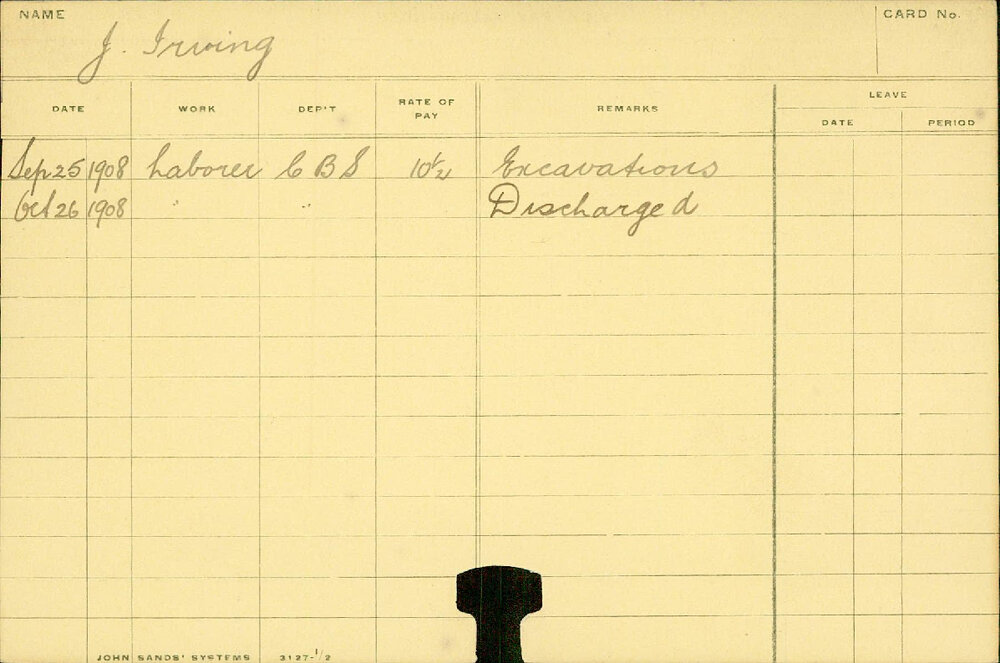 NAME
J. Irving
CARD No.
DATE WORK DEP'T RATE OF PAY REMARKS LEAVE
DATE PERIOD
Sep 25 1908 Laborer C B S 10½ Excavations
Oct 26 1908 " " Discharged
JOHN SANDS' SYSTEMS 3127-1/2